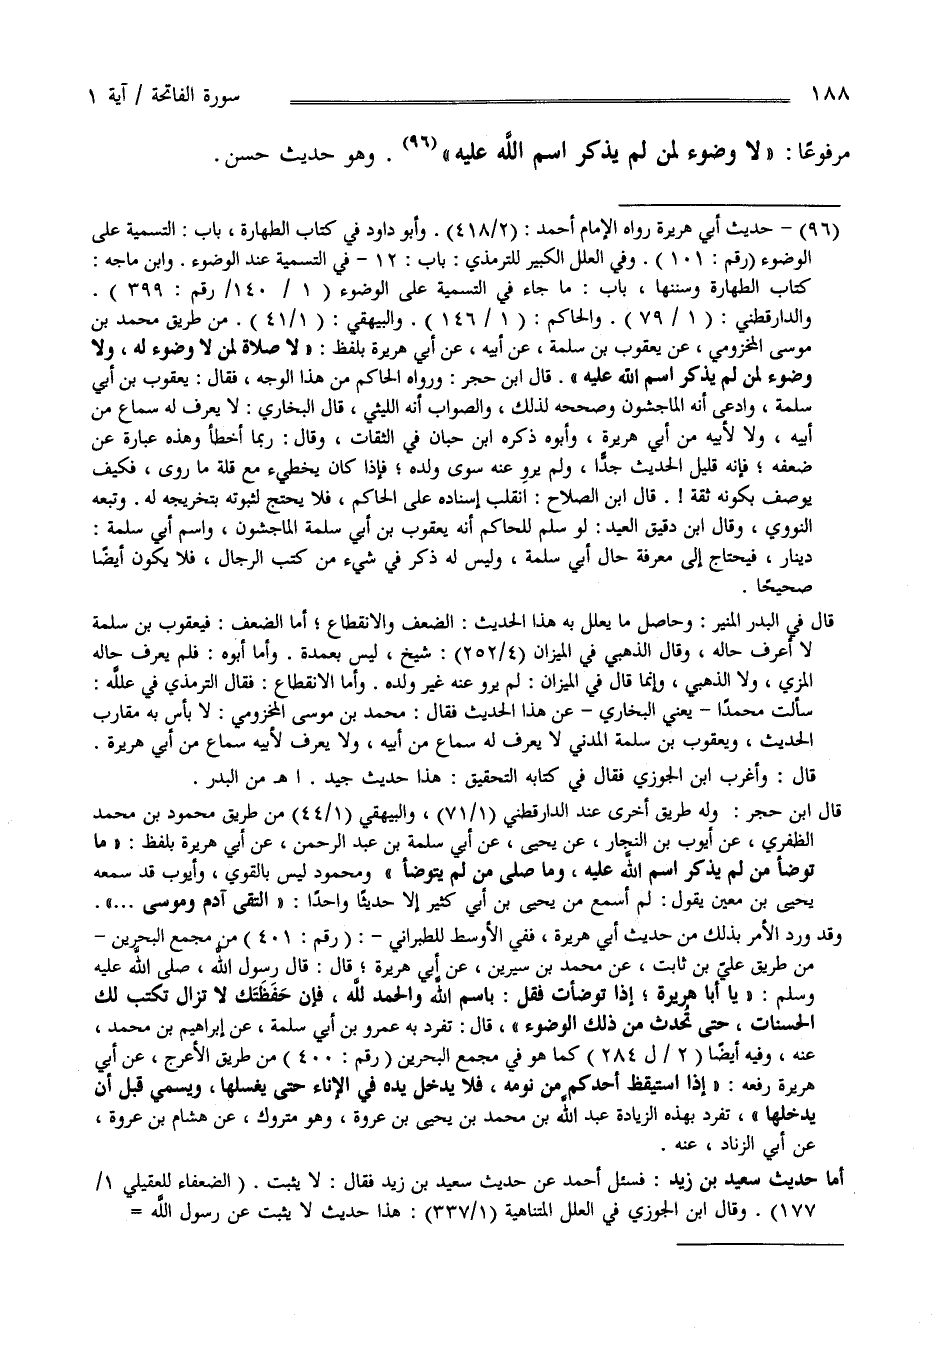 ١٨٨ سورة الفاتحة / آية ١
مرفوعًا : « لا وضوء لمن لم يذكر اسم اللَّه عليه »(٩٦) . وهو حديث حسن .
(٩٦) – حديث أبي هريرة رواه الإمام أحمد : (٤١٨/٢) . وأبو داود في كتاب الطهارة ، باب : التسمية على
الوضوء (رقم : ١٠١ ) . وفي العلل الكبير للترمذي : باب : ١٢ – في التسمية عند الوضوء . وابن ماجه :
كتاب الطهارة وسننها ، باب : ما جاء في التسمية على الوضوء ( ١ / ١٤٠/ رقم : ٣٩٩ ) .
والدارقطني : ( ١ / ٧٩) . والحاكم : ( ١ / ١٤٦ ) . والبيهقي : ( ٤١/١) . من طريق محمد بن
موسى المخزومي ، عن يعقوب بن سلمة ، عن أبيه ، عن أبي هريرة بلفظ : « لا صلاة لمن لا وضوء له ، ولا
وضوء لمن لم يذكر اسم الله عليه » . قال ابن حجر : ورواه الحاكم من هذا الوجه ، فقال : يعقوب بن أبي
سلمة ، وادعى أنه الماجشون وصححه لذلك ، والصواب أنه الليثي ، قال البخاري : لا يعرف له سماع من
أبيه ، ولا لأبيه من أبي هريرة ، وأبوه ذكره ابن حبان في الثقات ، وقال : ربما أخطأ وهذه عبارة عن
ضعفه ؛ فإنه قليل الحديث جدًّا ، ولم يروِ عنه سوى ولده ؛ فإذا كان يخطيء مع قلة ما روى ، فكيف
يوصف بكونه ثقة ! . قال ابن الصلاح : انقلب إسناده على الحاكم ، فلا يحتج لثبوته بتخريجه له . وتبعه
النووي ، وقال ابن دقيق العيد : لو سلم للحاكم أنه يعقوب بن أبي سلمة الماجشون ، واسم أبي سلمة :
دينار ، فيحتاج إلى معرفة حال أبي سلمة ، وليس له ذكر في شيء من كتب الرجال ، فلا يكون أيضًا
صحيحًا .
قال في البدر المنير : وحاصل ما يعلل به هذا الحديث : الضعف والانقطاع ؛ أما الضعف : فيعقوب بن سلمة
لا أعرف حاله ، وقال الذهبي في الميزان (٢٥٢/٤) : شيخ ، ليس بعمدة . وأما أبوه : فلم يعرف حاله
المزي ، ولا الذهبي ، وإنما قال في الميزان : لم يرو عنه غير ولده . وأما الانقطاع : فقال الترمذي في علله :
سألت محمدًا – يعني البخاري – عن هذا الحديث فقال : محمد بن موسى المخزومي : لا بأس به مقارب
الحديث ، ويعقوب بن سلمة المدني لا يعرف له سماع من أبيه ، ولا يعرف لأبيه سماع من أبي هريرة .
قال : وأغرب ابن الجوزي فقال في كتابه التحقيق : هذا حديث جيد . ا هـ من البدر .
قال ابن حجر : وله طريق أخرى عند الدارقطني (٧١/١) ، والبيهقي (٤٤/١) من طريق محمود بن محمد
الظفري ، عن أيوب بن النجار ، عن يحيى ، عن أبي سلمة بن عبد الرحمن ، عن أبي هريرة بلفظ : « ما
توضأ من لم يذكر اسم اللَّه عليه ، وما صلى من لم يتوضأ » ومحمود ليس بالقوي ، وأيوب قد سمعه
يحيى بن معين يقول : لم أسمع من يحيى بن أبي كثير إلا حديثًا واحدًا : « التقى آدم وموسى ...» .
وقد ورد الأمر بذلك من حديث أبي هريرة ، ففي الأوسط للطبراني – : ( رقم : ٤٠١ ) من مجمع البحرين –
من طريق عليّ بن ثابت ، عن محمد بن سيرين ، عن أبي هريرة ؛ قال : قال رسول اللَّه ، صلى اللَّه عليه
وسلم : « يا أبا هريرة ؛ إذا توضأت فقل : باسم اللَّه والحمد للَّه ، فإن حَفَظَتَك لا تزال تكتب لك
الحسنات ، حتى تُحدث من ذلك الوضوء » ، قال : تفرد به عمرو بن أبي سلمة ، عن إبراهيم بن محمد ،
عنه ، وفيه أيضًا ( ٢ / ل ٢٨٤ ) كما هو في مجمع البحرين ( رقم : ٤٠٠ ) من طريق الأعرج ، عن أبي
هريرة رفعه : « إذا استيقظ أحدكم من نومه ، فلا يدخل يده في الإناء حتى يغسلها ، ويسمي قبل أن
يدخلها » ، تفرد بهذه الزيادة عبد اللَّه بن محمد بن يحيى بن عروة ، وهو متروك ، عن هشام بن عروة ،
عن أبي الزناد ، عنه .
أما حديث سعيد بن زيد : فسئل أحمد عن حديث سعيد بن زيد فقال : لا يثبت . ( الضعفاء للعقيلي ١/
١٧٧) . وقال ابن الجوزي في العلل المتناهية (٣٣٧/١) : هذا حديث لا يثبت عن رسول اللَّه =